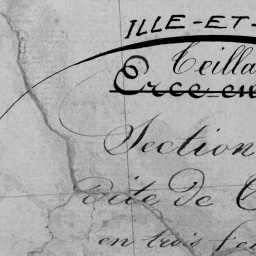 ILLE-ET-
Teilla
Erce en
Section
dite de C
en trois feu